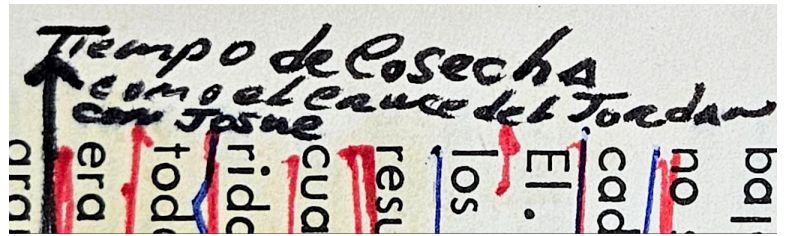 Tiempo de Cosecha
como el cruce del Jordan
con Josue
bal
no s
cad
El.
los
resu
cua
rida
todo
era